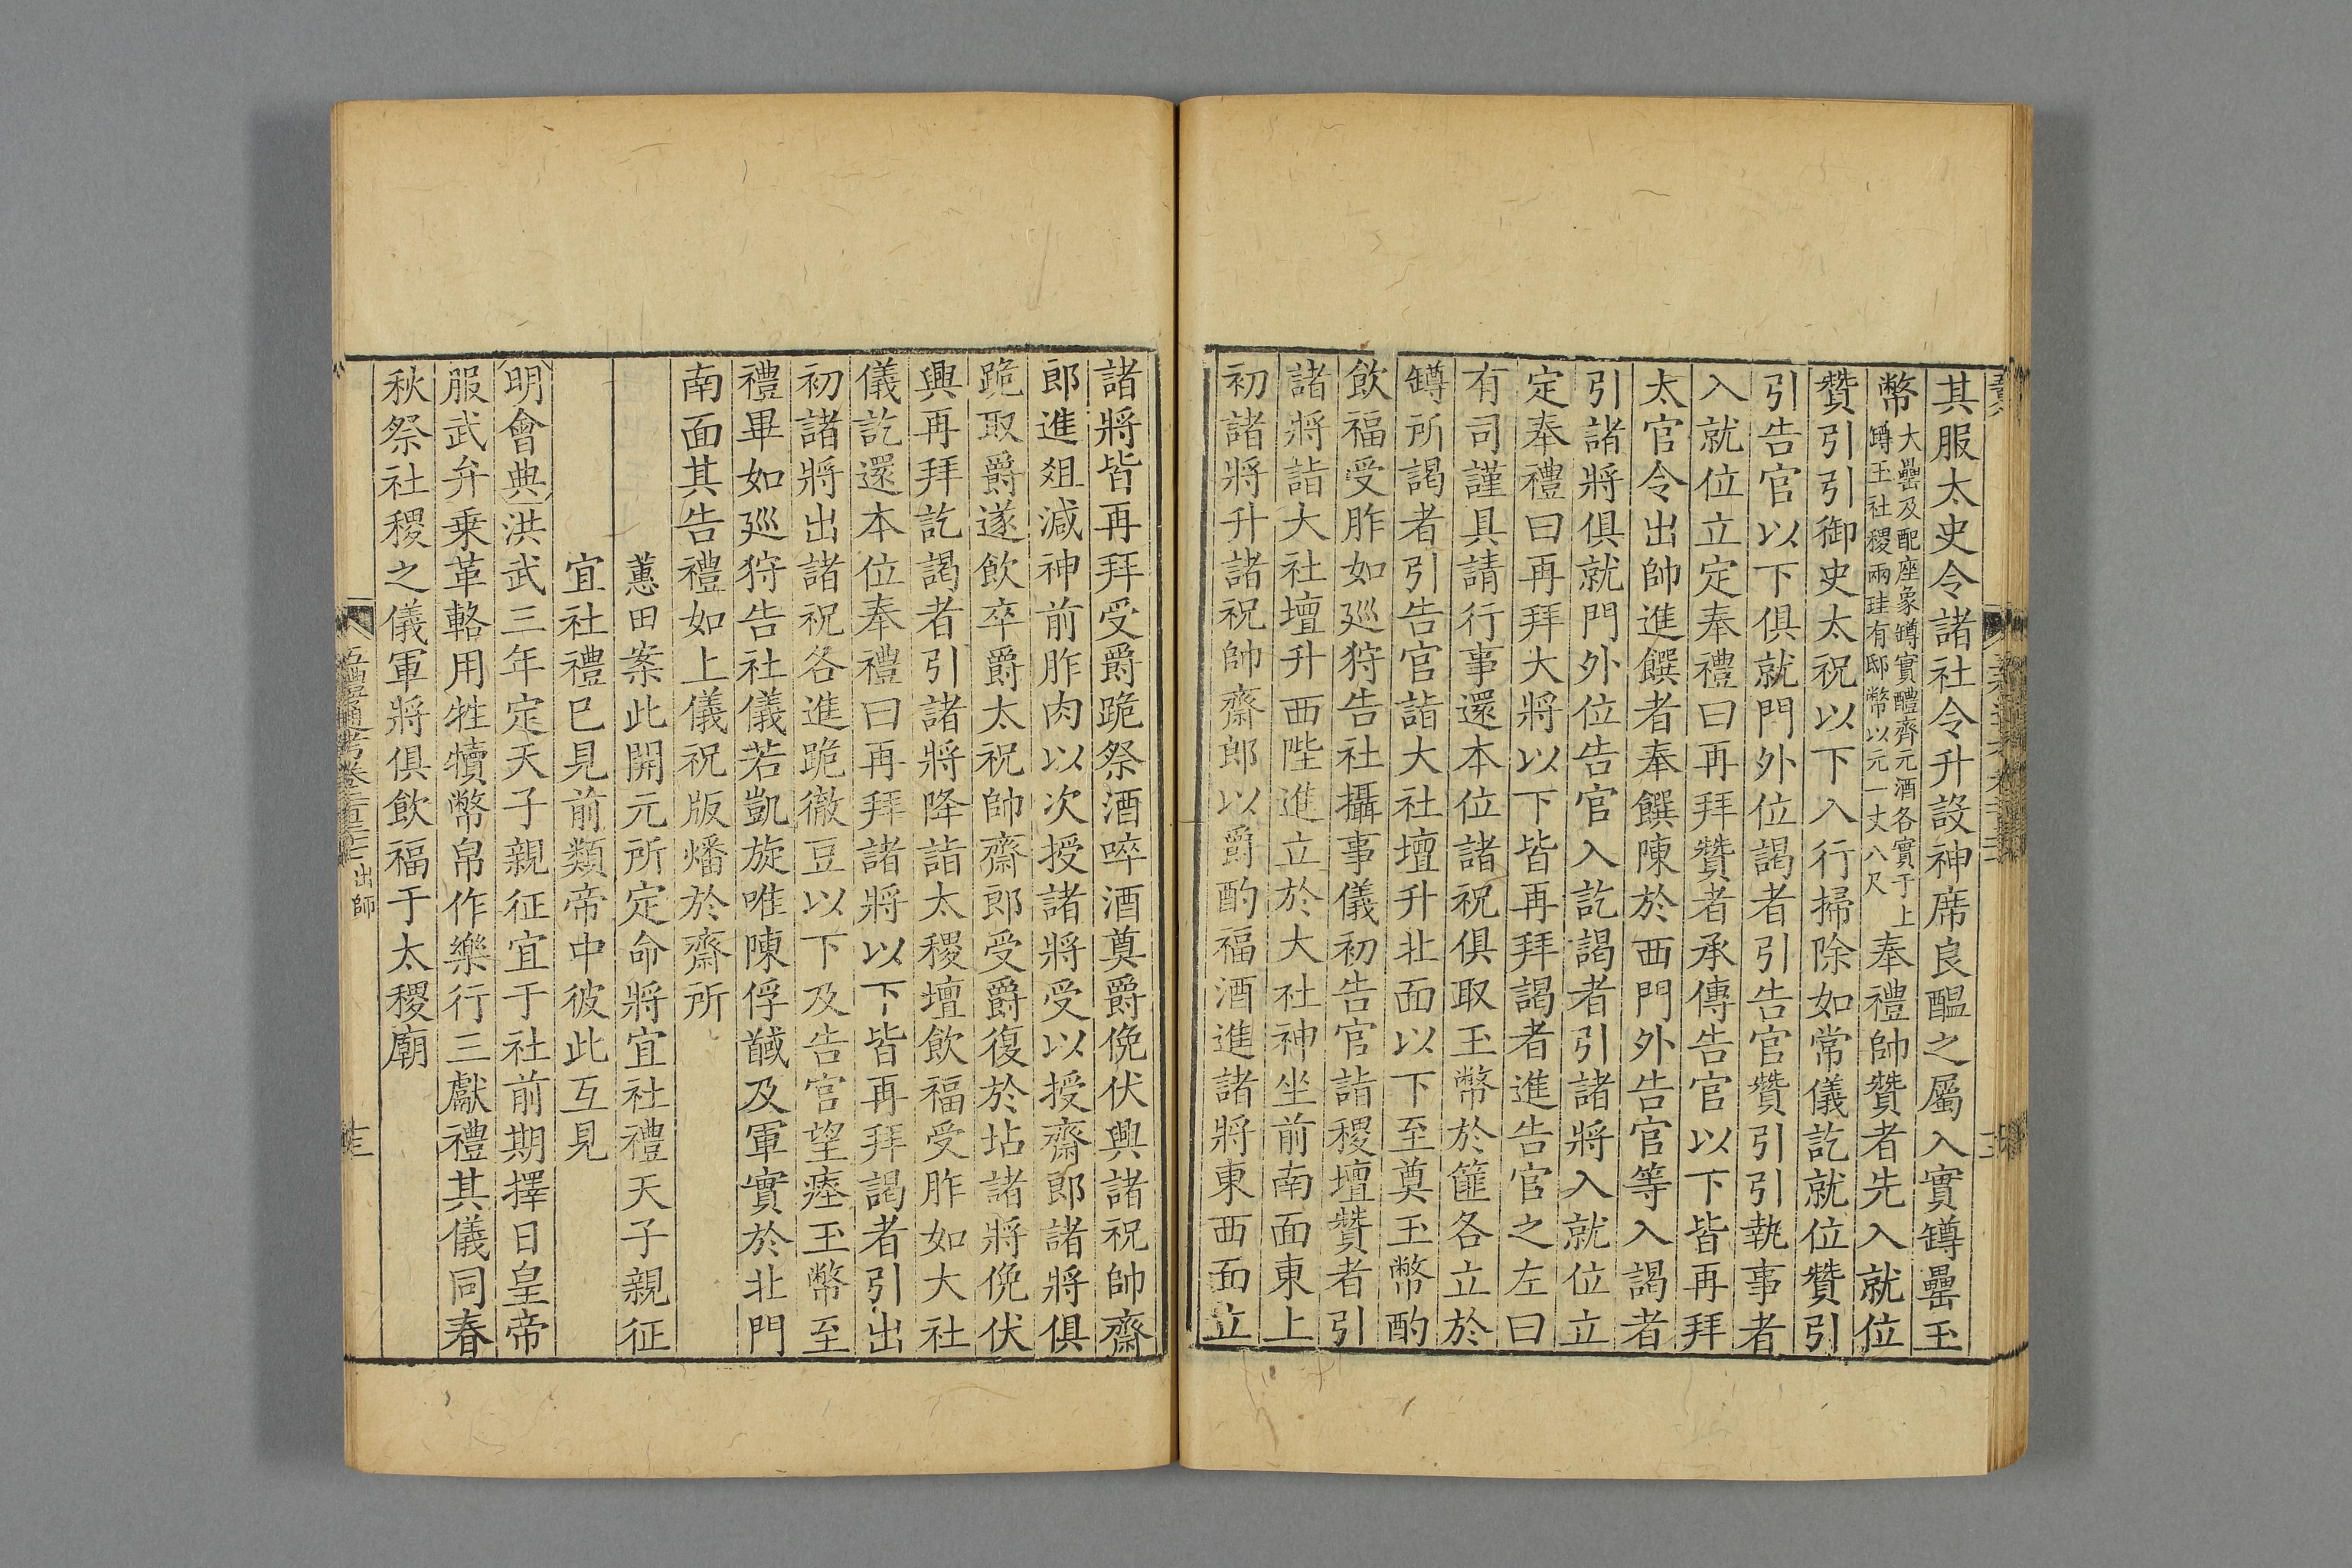 其服太史令諸社令升設神席良醞之屬入實罇罍玉
幣
大罍及配座象罇實醴齊元酒各實于上
罇玉社稷兩珪有邸幣以元一丈八尺
奉禮帥贊者先入就位
贊引引御史太祝以下入行掃除如常儀訖就位贊引
引告官以下俱就門外位謁者引告官贊引引執事者
入就位立定奉禮曰再拜贊者承傳告官以下皆再拜
太官令出帥進饌者奉饌陳於西門外告官等入謁者
引諸將俱就門外位告官入訖謁者引諸將入就位立
定奉禮曰再拜大將以下皆再拜謁者進告官之左曰
有司謹具請行事還本位諸祝俱取玉幣於篚各立於
罇所謁者引告官詣大社壇升北面以下至奠玉幣酌
飲福受胙如巡狩告社攝事儀初告官詣稷壇贊者引
諸將詣大社壇升西陛進立於大社神坐前南面東上
初諸將升諸祝帥齋郎以爵酌福酒進諸將東西面立
諸將皆再拜受爵跪祭酒啐酒奠爵俛伏興諸祝帥齋
郎進俎減神前胙肉以次授諸將受以授齋郎諸將俱
跪取爵遂飲卒爵太祝帥齋郎受爵復於坫諸將俛伏
興再拜訖謁者引諸將降詣太稷壇飲福受胙如大社
儀訖還本位奉禮曰再拜諸將以下皆再拜謁者引出
初諸將出諸祝各進跪徹豆以下及告官望瘞玉幣至
禮畢如巡狩告社儀若凱旋唯陳俘馘及軍實於北門
南面其告禮如上儀祝版燔於齋所
蕙田案此開元所定命將宜社禮天子親征
宜社禮已見前類帝中彼此互見
明會典洪武三年定天子親征宜于社前期擇日皇帝
服武弁乗革輅用牲犢幣帛作樂行三獻禮其儀同春
秋祭社稷之儀軍將俱飲福于太稷廟
五禮通考卷二百三十二
出師